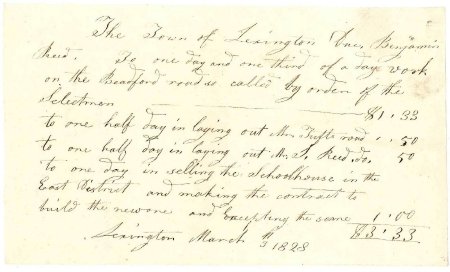 The Town of Lexington Benjamin
Reed. To one day and one third of a day work
on the Beadford road so called by order of the
Selectmen $1.33
to one half day in laying out Mr. Tufts road . . 50
to one half day in laying out Mr. J. Reed, do. 50
to one day in selling the Schoolhouse in the
East District and making the contract to
build the new one and Excepting the same 1.00
Lexington March 1828 $3.33